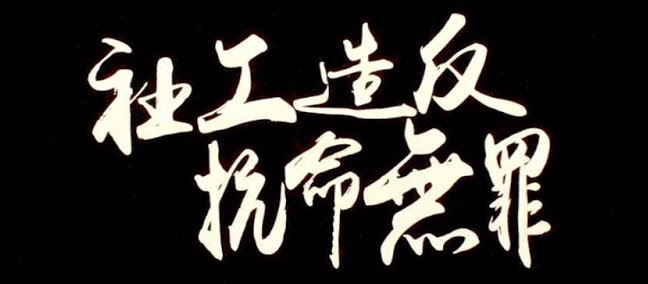 社工造反
抗命無罪